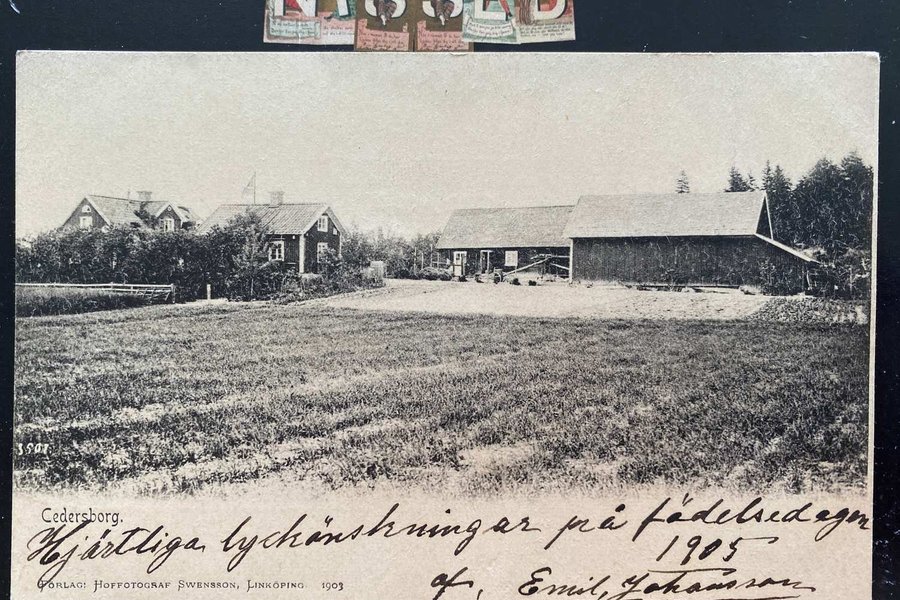 NISSED
3501
Cedersborg.
Hjärtliga lyckönskningar på födelsedagen
1905
FÖRLAG: HOFFOTOGRAF SWENSSON, LINKÖPING 1903
af, Emil, Johansson